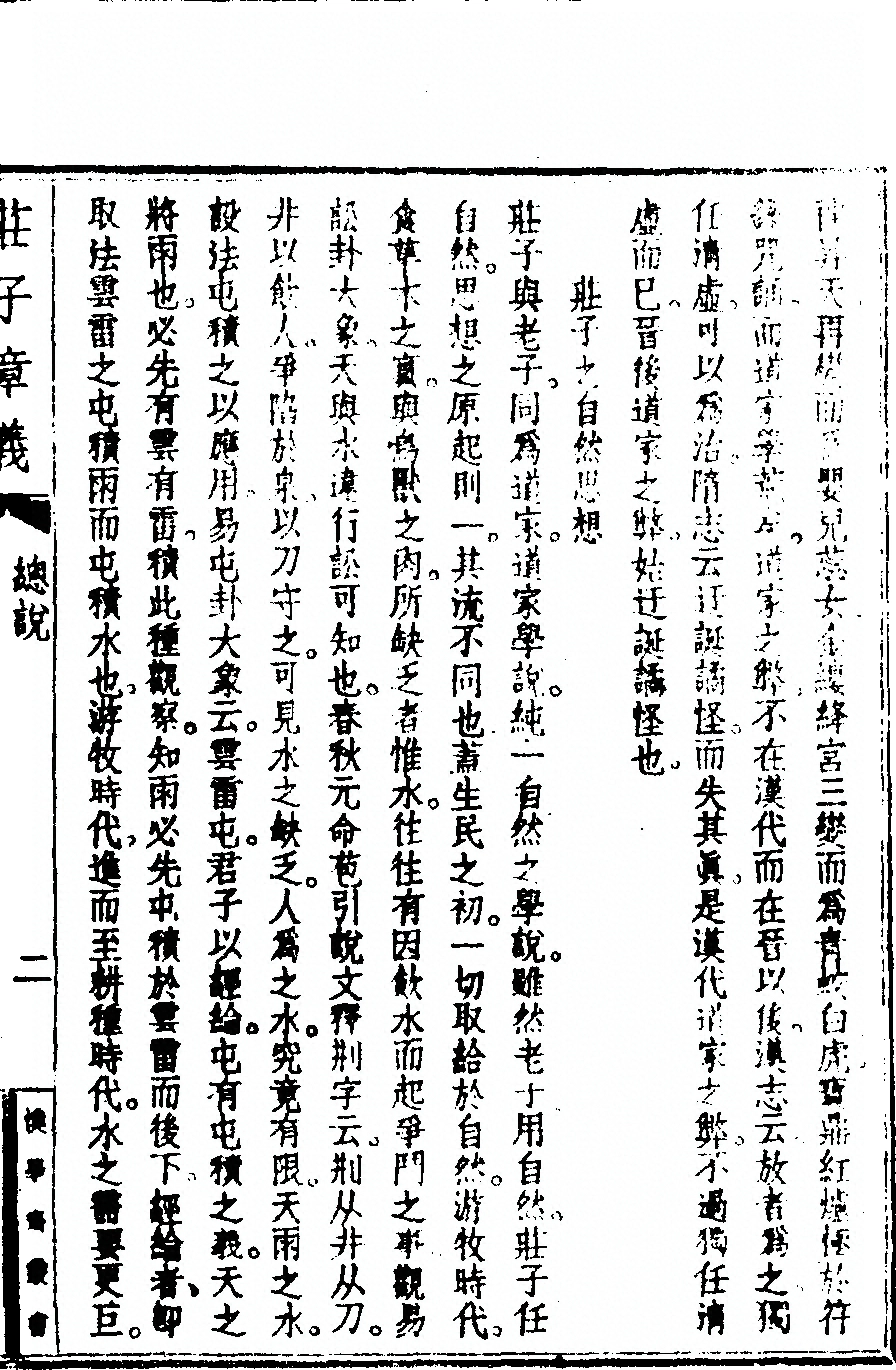 昇天再變而爲嬰兒蕊女金縷絳宮三變而爲青蛟白虎寶鼎紅爐極於符
咒誦而道家學荒矣道家之弊不在漢代而在晉以後漢志云放者爲之獨
任清虛可以爲治隋志云迂誕譎怪而失其眞是漢代道家之弊不過獨任清
虛而已晉後道家之弊始迂誕譎怪也。
莊子之自然思想
莊子與老子。同爲道家。道家學說。純一自然之學說。雖然老子用自然。莊子任
自然。思想之原起則一。其流不同也蓋生民之初。一切取給於自然。游牧時代。
食草木之實。與鳥獸之肉。所缺乏者惟水。往往有因飲水而起爭鬥之事觀易
訟卦大象。天與水違行訟可知也。春秋元命苞引說文釋荆字云。荆从井从刀。
井以飲人。爭陷於泉。以刀守之。可見水之缺乏。人爲之水。究竟有限。天雨之水。
設法屯積之以應用。易屯卦大象云。雲雷屯。君子以經綸。屯有屯積之義。天之
將雨也。必先有雲有雷。積此種觀察。知雨必先屯積於雲雷而後下。經綸者、卽
取法雲雷之屯積雨而屯積水也。游牧時代。進而至耕種時代。水之需要更巨。
莊子章義
總說
二
樸學齋叢書